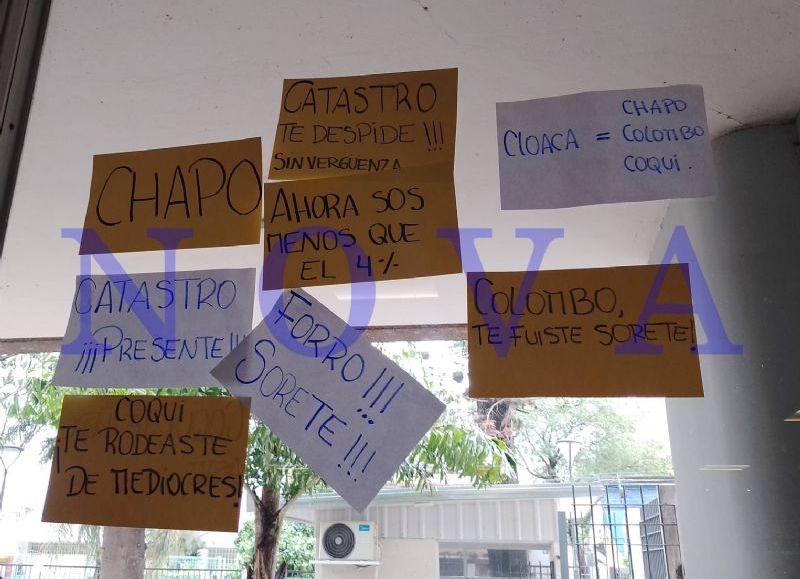 CATASTRO
TE DESPIDE !!!
SINVERGÜENZA
CHAPO
CLOACA = COLOMBO
COQUI.
CHAPO
AHORA SOS
MENOS QUE
EL 4%
NOVA
CATASTRO
¡¡¡PRESENTE!!!
FORRO!!!
SORETE!!!
COLOMBO,
TE FUISTE SORETE!
COQUI
¡TE RODEASTE
DE MEDIOCRES!